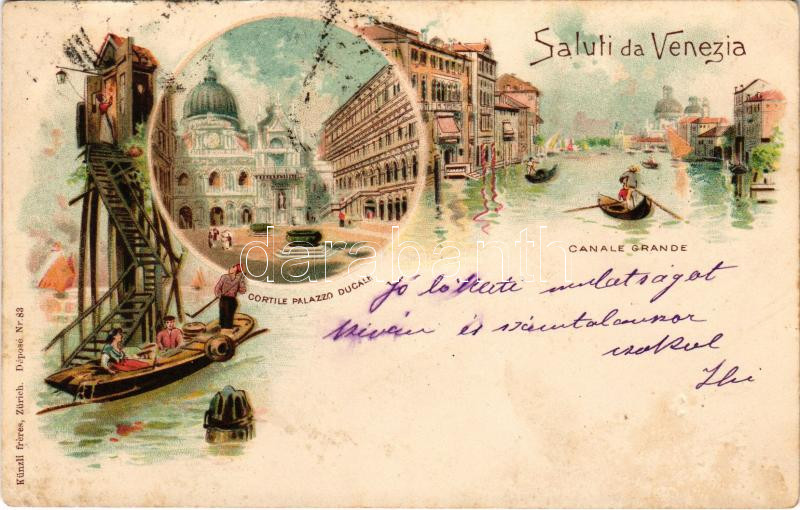 Saluti da Venezia
CORTILE PALAZZO DUCALE
CANALE GRANDE
Jó lövészeti mulatságot
kiván és számtalanszor
csokol
Ili
Künzli frères, Zürich. Déposé Nr. 83
darabanth